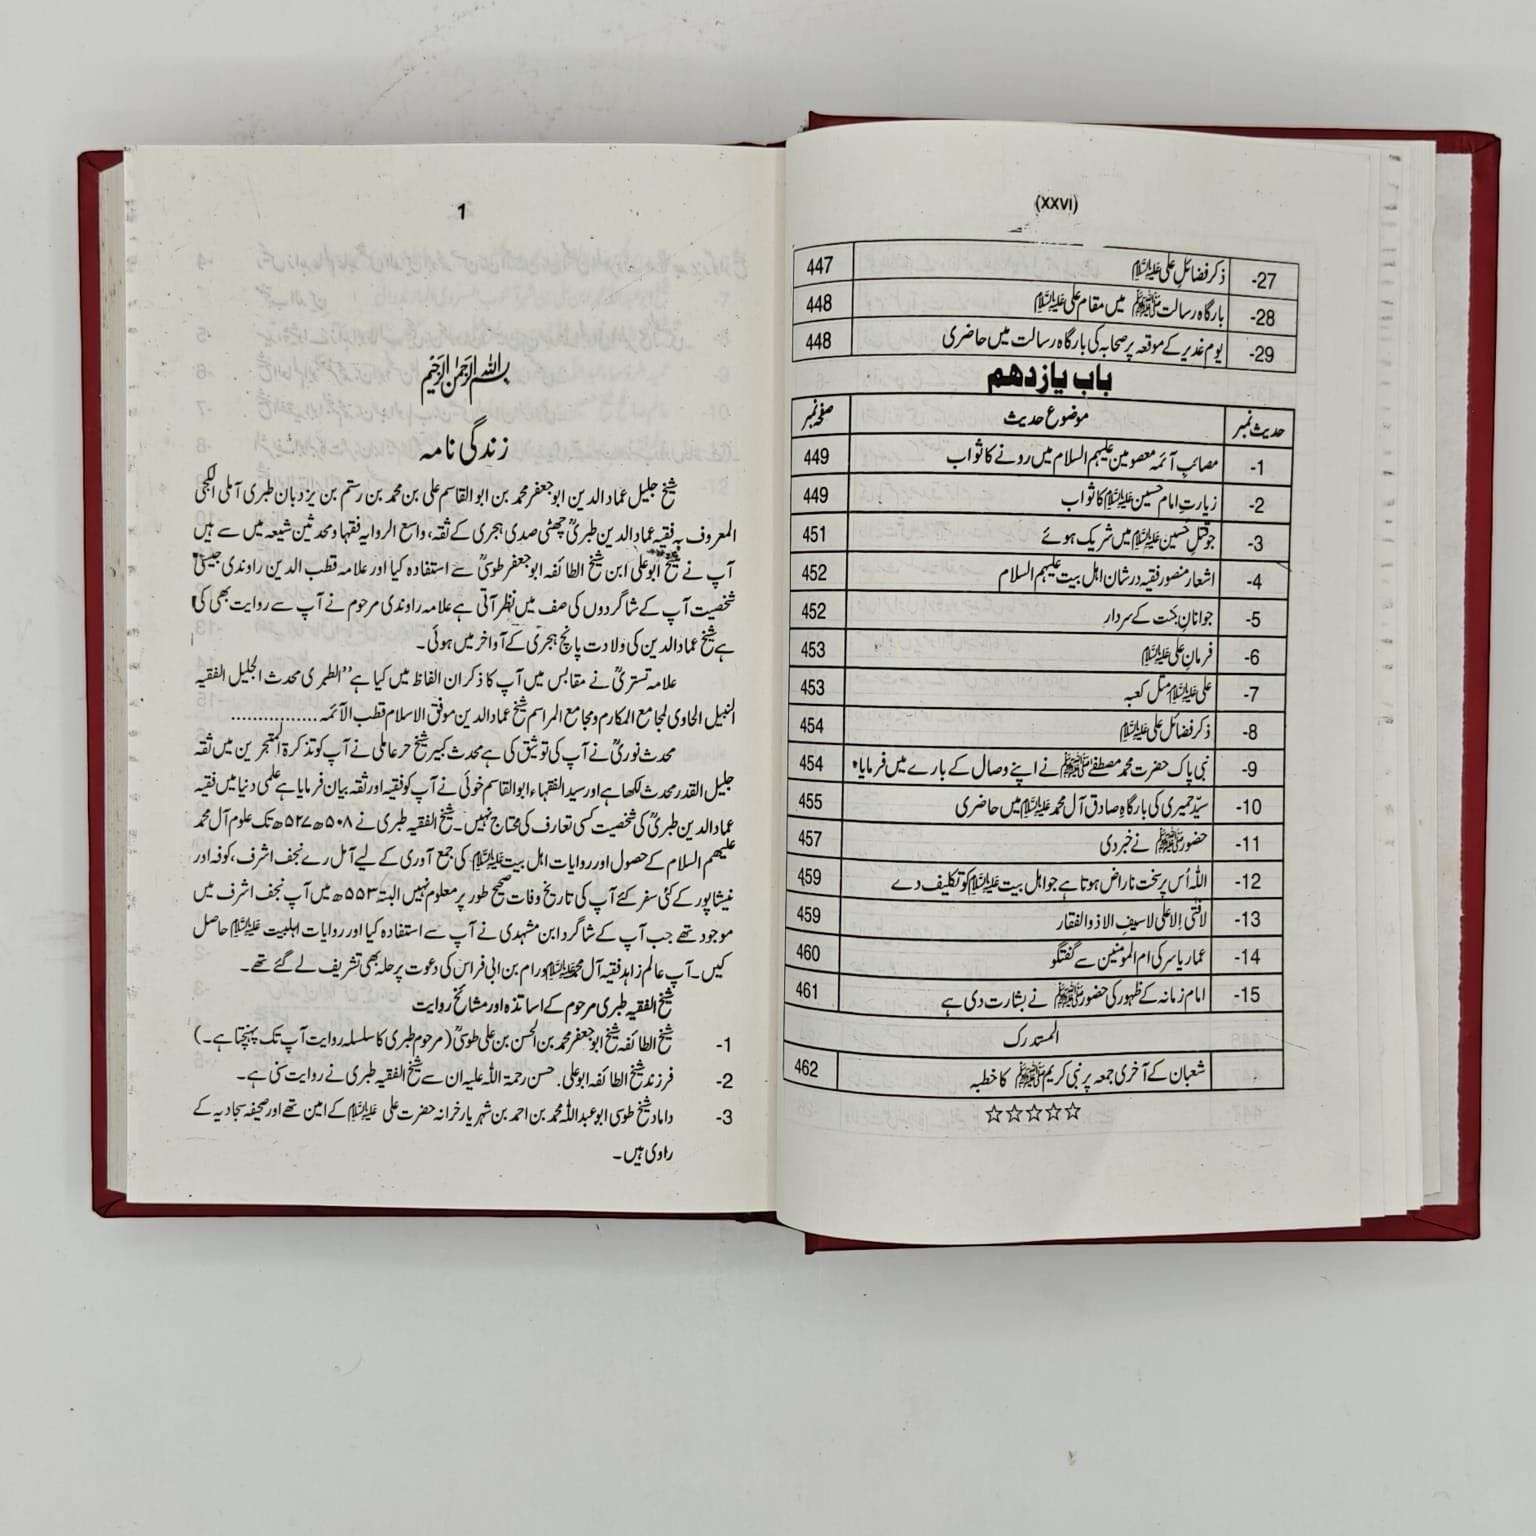 (xxvi)
27- ذکر فضائلِ علی علیہ السلام 447
28- بارگاہ رسالت ﷺ میں مقام علی علیہ السلام 448
29- یوم غدیر کے موقعہ پر صحابہ کی بارگاہ رسالت میں حاضری 448
باب یازدهم
حدیث نمبر موضوع حدیث صفحہ نمبر
1- مصائبِ آئمہ معصومین علیہم السلام میں رونے کا ثواب 449
2- زیارتِ امام حسین علیہ السلام کا ثواب 449
3- جو قتلِ حسین علیہ السلام میں شریک ہوئے 451
4- اشعار منصور فقیہ در شان اہل بیت علیہم السلام 452
5- جوانانِ جنت کے سردار 452
6- فرمانِ علی علیہ السلام 453
7- علی علیہ السلام مثل کعبہ 453
8- ذکر فضائل علی علیہ السلام 454
9- نبی پاک حضرت محمد مصطفےٰ ﷺ نے اپنے وصال کے بارے میں فرمایا 454
10- سیّد حمیری کی بارگاہِ صادق آل محمد علیہ السلام میں حاضری 455
11- حضور ﷺ نے خبر دی 457
12- اللہ اُس پر سخت ناراض ہوتا ہے جو اہل بیت علیہ السلام کو تکلیف دے 459
13- لا فتیٰ اِلا علی لا سیف الا ذوالفقار 459
14- عمار یاسر کی ام المومنین سے گفتگو 460
15- امام زمانہ کے ظہور کی حضور ﷺ نے بشارت دی ہے 461
المستدرک
شعبان کے آخری جمعہ پر نبی کریم ﷺ کا خطبہ 462
☆☆☆☆☆
1
بسم اللہ الرحمٰن الرحیم
زندگی نامہ
شیخ جلیل عماد الدین ابو جعفر محمد بن ابوالقاسم علی بن محمد بن رستم بن یزدبان طبری آملی الکجی
المعروف بہ فقیہ عماد الدین طبریؒ چھٹی صدی ہجری کے ثقہ، واسع الروایہ فقہا و محدثین شیعہ میں سے ہیں
آپ نے شیخ ابوعلی ابن شیخ الطائفہ ابو جعفر طوسیؒ سے استفادہ کیا اور علامہ قطب الدین راوندی جیسی
شخصیت آپ کے شاگردوں کی صف میں نظر آتی ہے علامہ راوندی مرحوم نے آپ سے روایت بھی کی
ہے شیخ عماد الدین کی ولادت پانچ ہجری کے آواخر میں ہوئی۔
علامہ تستریؒ نے مقابس میں آپ کا ذکر ان الفاظ میں کیا ہے ”الطبری محدث الجلیل الفقیہ
النبیل الحاوی لمجامع المکارم و مجامع المراسم شیخ عماد الدین موفق الاسلام قطب الآئمہ ................
محدث نوریؒ نے آپ کی توثیق کی ہے محدث کبیر شیخ حر عاملی نے آپ کو تذکرۃ المتبحرین میں ثقہ
جلیل القدر محدث لکھا ہے اور سید الفقہاء ابوالقاسم خوئی نے آپ کو فقیہ اور ثقہ بیان فرمایا ہے علمی دنیا میں فقیہ
عماد الدین طبریؒ کی شخصیت کسی تعارف کی محتاج نہیں۔ شیخ الفقیہ طبری نے ۵۰۸ھ ۵۲۷ھ تک علوم آل محمد
علیہم السلام کے حصول اور روایات اہل بیت علیہ السلام کی جمع آوری کے لیے آمل رے نجف اشرف، کوفہ اور
نیشاپور کے کئی سفر کئے آپ کی تاریخ وفات صحیح طور پر معلوم نہیں البتہ ۵۵۳ھ میں آپ نجف اشرف میں
موجود تھے جب آپ کے شاگرد ابن مشہدی نے آپ سے استفادہ کیا اور روایات اہلبیت علیہ السلام حاصل
کیں۔ آپ عالم زاہد فقیہ آل محمد علیہ السلام ورام بن ابی فراس کی دعوت پر حلہ بھی تشریف لے گئے تھے۔
شیخ الفقیہ طبری مرحوم کے اساتذہ اور مشائخ روایت
1- شیخ الطائفہ شیخ ابو جعفر محمد بن الحسن بن علی طوسیؒ (مرحوم طبری کا سلسلہ روایت آپ تک پہنچتا ہے۔)
2- فرزند شیخ الطائفہ ابوعلی. حسن رحمۃ اللہ علیہ ان سے شیخ الفقیہ طبری نے روایت سنی ہے۔
3- داماد شیخ طوسی ابو عبداللہ محمد بن احمد بن شہریار خزانہ حضرت علی علیہ السلام کے امین تھے اور صحیفہ سجادیہ کے
راوی ہیں۔